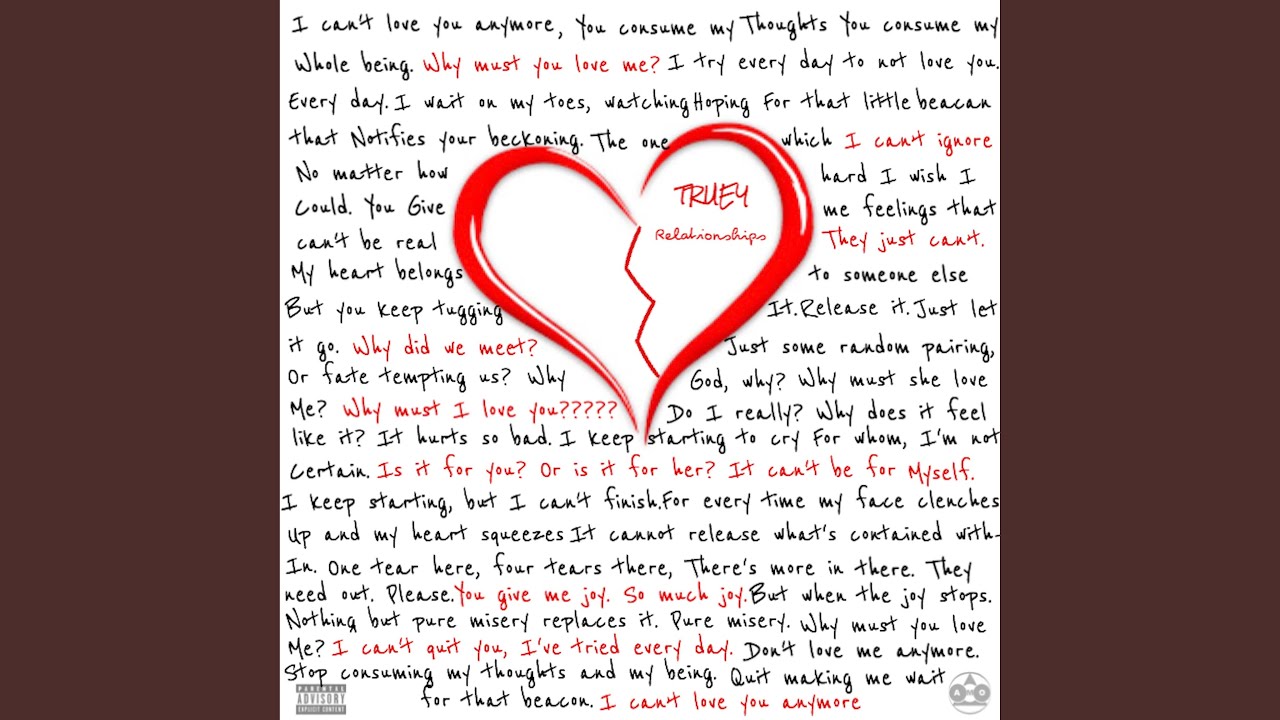 I can't love you anymore, You consume my Thoughts You consume my
Whole being. Why must you love me? I try every day to not love you.
Every day. I wait on my toes, watching Hoping For that little beacan
that Notifies your beckoning. The one which I can't ignore
No matter how hard I wish I
Could. You Give me feelings that
can't be real They just can't.
My heart belongs to someone else
But you keep tugging It. Release it. Just let
it go. Why did we meet? Just some random pairing,
Or fate tempting us? Why God, why? Why must she love
Me? Why must I love you????? Do I really? Why does it feel
like it? It hurts so bad. I keep starting to cry For whom, I'm not
Certain. Is it for you? Or is it for her? It can't be for Myself.
I keep starting, but I can't finish. For every time my face clenches
Up and my heart squeezes It cannot release what's contained with-
In. One tear here, four tears there, There's more in there. They
need out. Please. You give me joy. So much joy. But when the joy stops.
Nothing but pure misery replaces it. Pure misery. Why must you love
Me? I can't quit you, I've tried every day. Don't love me anymore.
Stop consuming my thoughts and my being. Quit making me wait
for that beacon. I can't love you anymore
TRUEY
Relationships
PARENTAL
ADVISORY
EXPLICIT CONTENT
AMO